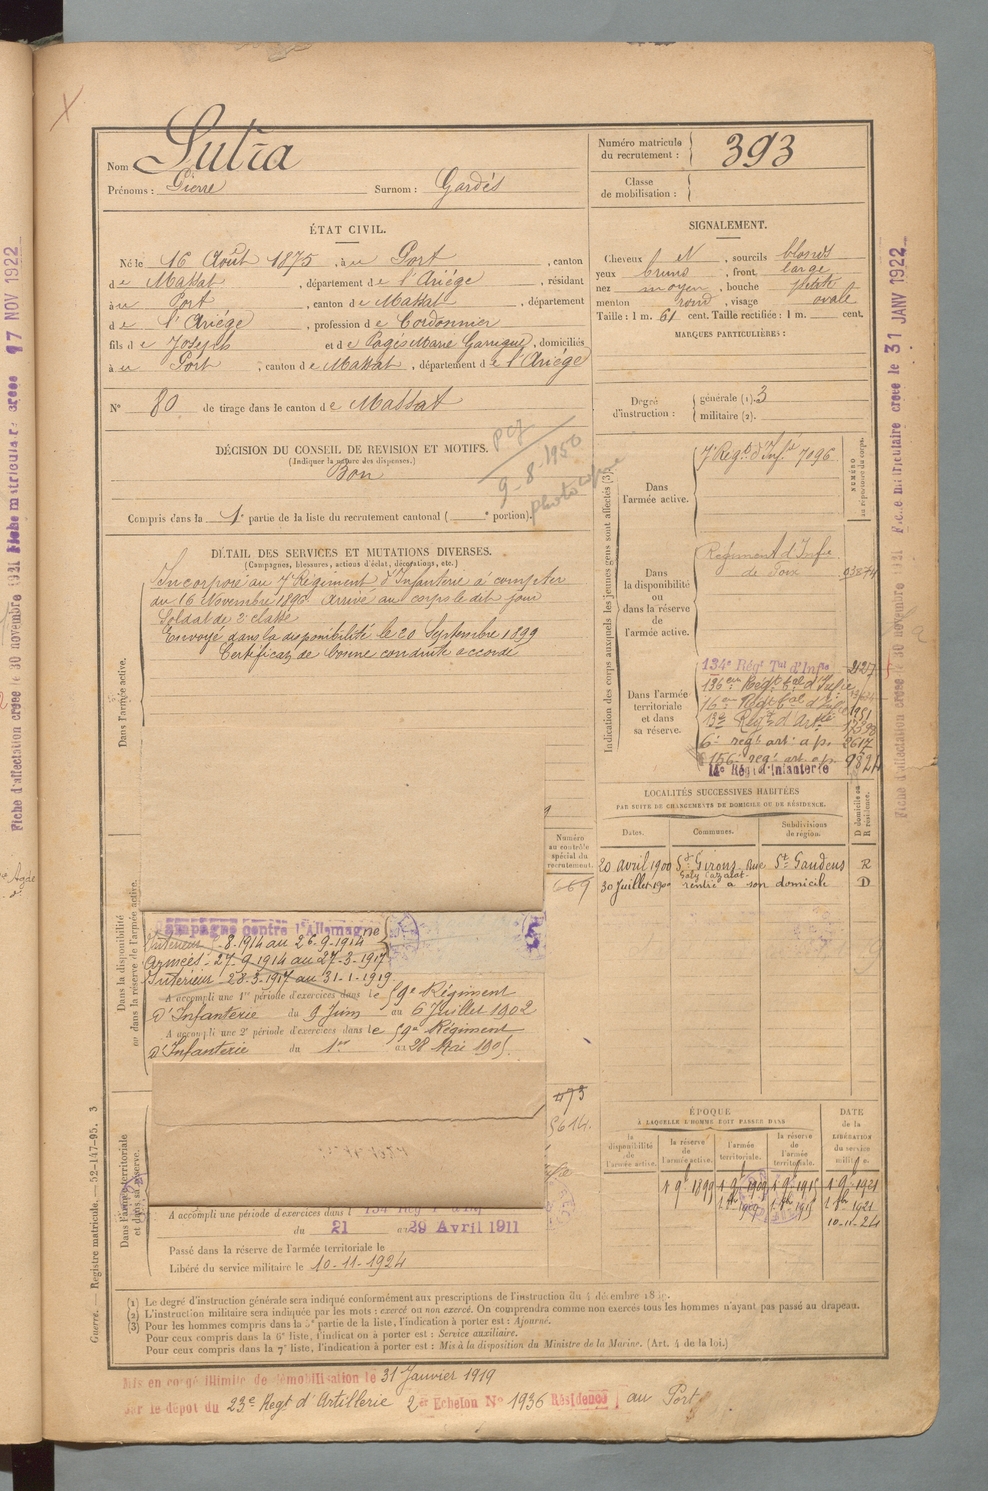 Nom Sutra
Prénoms : Pierre Surnom : Gardès
Numéro matricule
du recrutement : 393
Classe
de mobilisation :
ÉTAT CIVIL.
Né le 16 Août 1875, à u Port, canton
de Massat, département de l'Ariége, résidant
à u Port, canton de Massat, département
de l'Ariége, profession de Cordonnier
fils de Joseph et de Pagès Marie Garrigue, domiciliés
à u Port, canton de Massat, département de l'Ariége
N° 80 de tirage dans le canton de Massat
SIGNALEMENT.
Cheveux N, sourcils blonds
yeux bruns, front large
nez moyen, bouche petite
menton rond, visage ovale
Taille : 1 m. 61 cent. Taille rectifiée : 1 m. cent.
MARQUES PARTICULIÈRES :
Degré
d'instruction : générale (1). 3
militaire (2).
DÉCISION DU CONSEIL DE REVISION ET MOTIFS.
(Indiquer la nature des dispenses.)
Bon
9-8-1950
photocopie
Compris dans la 1e partie de la liste du recrutement cantonal ( e portion).
DÉTAIL DES SERVICES ET MUTATIONS DIVERSES.
(Campagnes, blessures, actions d'éclat, décorations, etc.)
Dans l'armée active.
Incorporé au 7e Régiment d'Infanterie à compter
du 16 Novembre 1896. Arrivé au corps le dit jour
Soldat de 2e classe
Envoyé dans la disponibilité le 20 Septembre 1899
Certificat de bonne conduite accordé
Indication des corps auxquels les jeunes gens sont affectés (3).
NUMÉRO
au répertoire du corps.
Dans
l'armée active.
7e Régt d'Infie 7096
Dans
la disponibilité
ou
dans la réserve
de
l'armée active.
Régiment d'Infie
de Foix 03874
Dans l'armée
territoriale
et dans
sa réserve.
134e Régt Tal d'Infie 2127
136eme Régt tal d'Infie
16eme Régt tal d'Infie 1951
13e Régt d'Artie 12598
6e regt art. à p. 2617
156e regt art. à p. 9824
14e Régt d'Infanterie
LOCALITÉS SUCCESSIVES HABITÉES
PAR SUITE DE CHANGEMENTS DE DOMICILE OU DE RÉSIDENCE.
Dates. Communes. Subdivisions
de région. D domicile ou
R résidence.
20 avril 1900 St Girons, Rue St Gaudens R
30 Juillet 1900 rentré à son domicile D
Numéro
au contrôle
spécial du
recrutement.
669
Dans la disponibilité
ou dans la réserve de l'armée active.
Campagne contre l'Allemagne
Intérieur -8-1914 au 26-9-1914
Armées - 27-9-1914 au 27-3-1917
Intérieur - 28-3-1917 au 31-1-1919
A accompli une 1re période d'exercices dans le 59e Régiment
d'Infanterie du 9 Juin au 6 Juillet 1902
A accompli une 2e période d'exercices dans le 59e Régiment
d'Infanterie du 1er au 28 Mai 1905.
473
5614.
Dans l'armée territoriale
et dans sa réserve.
A accompli une période d'exercices dans l 134 Rég
du 21 au 29 Avril 1911
Passé dans la réserve de l'armée territoriale le
Libéré du service militaire le 10-11-1924
ÉPOQUE
À LAQUELLE L'HOMME DOIT PASSER DANS
DATE
de la
LIBÉRATION
du service
militaire.
la
disponibilité
de
l'armée active.
la réserve
de
l'armée active.
l'armée
territoriale.
la réserve
de
l'armée
territoriale.
1 9e 1899 1 9e 1909 1 9e 1915 1 9e 1921
1909 1915 1921
10-11-24
(1) Le degré d'instruction générale sera indiqué conformément aux prescriptions de l'instruction du 4 décembre 1889.
(2) L'instruction militaire sera indiquée par les mots : exercé ou non exercé. On comprendra comme non exercés tous les hommes n'ayant pas passé au drapeau.
(3) Pour les hommes compris dans la 5e partie de la liste, l'indication à porter est : Ajourné.
Pour ceux compris dans la 6e liste, l'indication à porter est : Service auxiliaire.
Pour ceux compris dans la 7e liste, l'indication à porter est : Mis à la disposition du Ministre de la Marine. (Art. 4 de la loi.)
Mis en congé illimité de démobilisation le 31 Janvier 1919
par le dépôt du 23e Regt d'Artillerie 2e Echelon N° 1936 Résidence au Port
Guerre. — Registre matricule. — 52-147-95. 3
Fiche d'affectation créée le 30 novembre 1921 Fiche matriculaire créée 17 NOV 1922
Fiche d'affectation créée le 30 novembre 1921 Fiche matriculaire créée le 31 JANV 1922